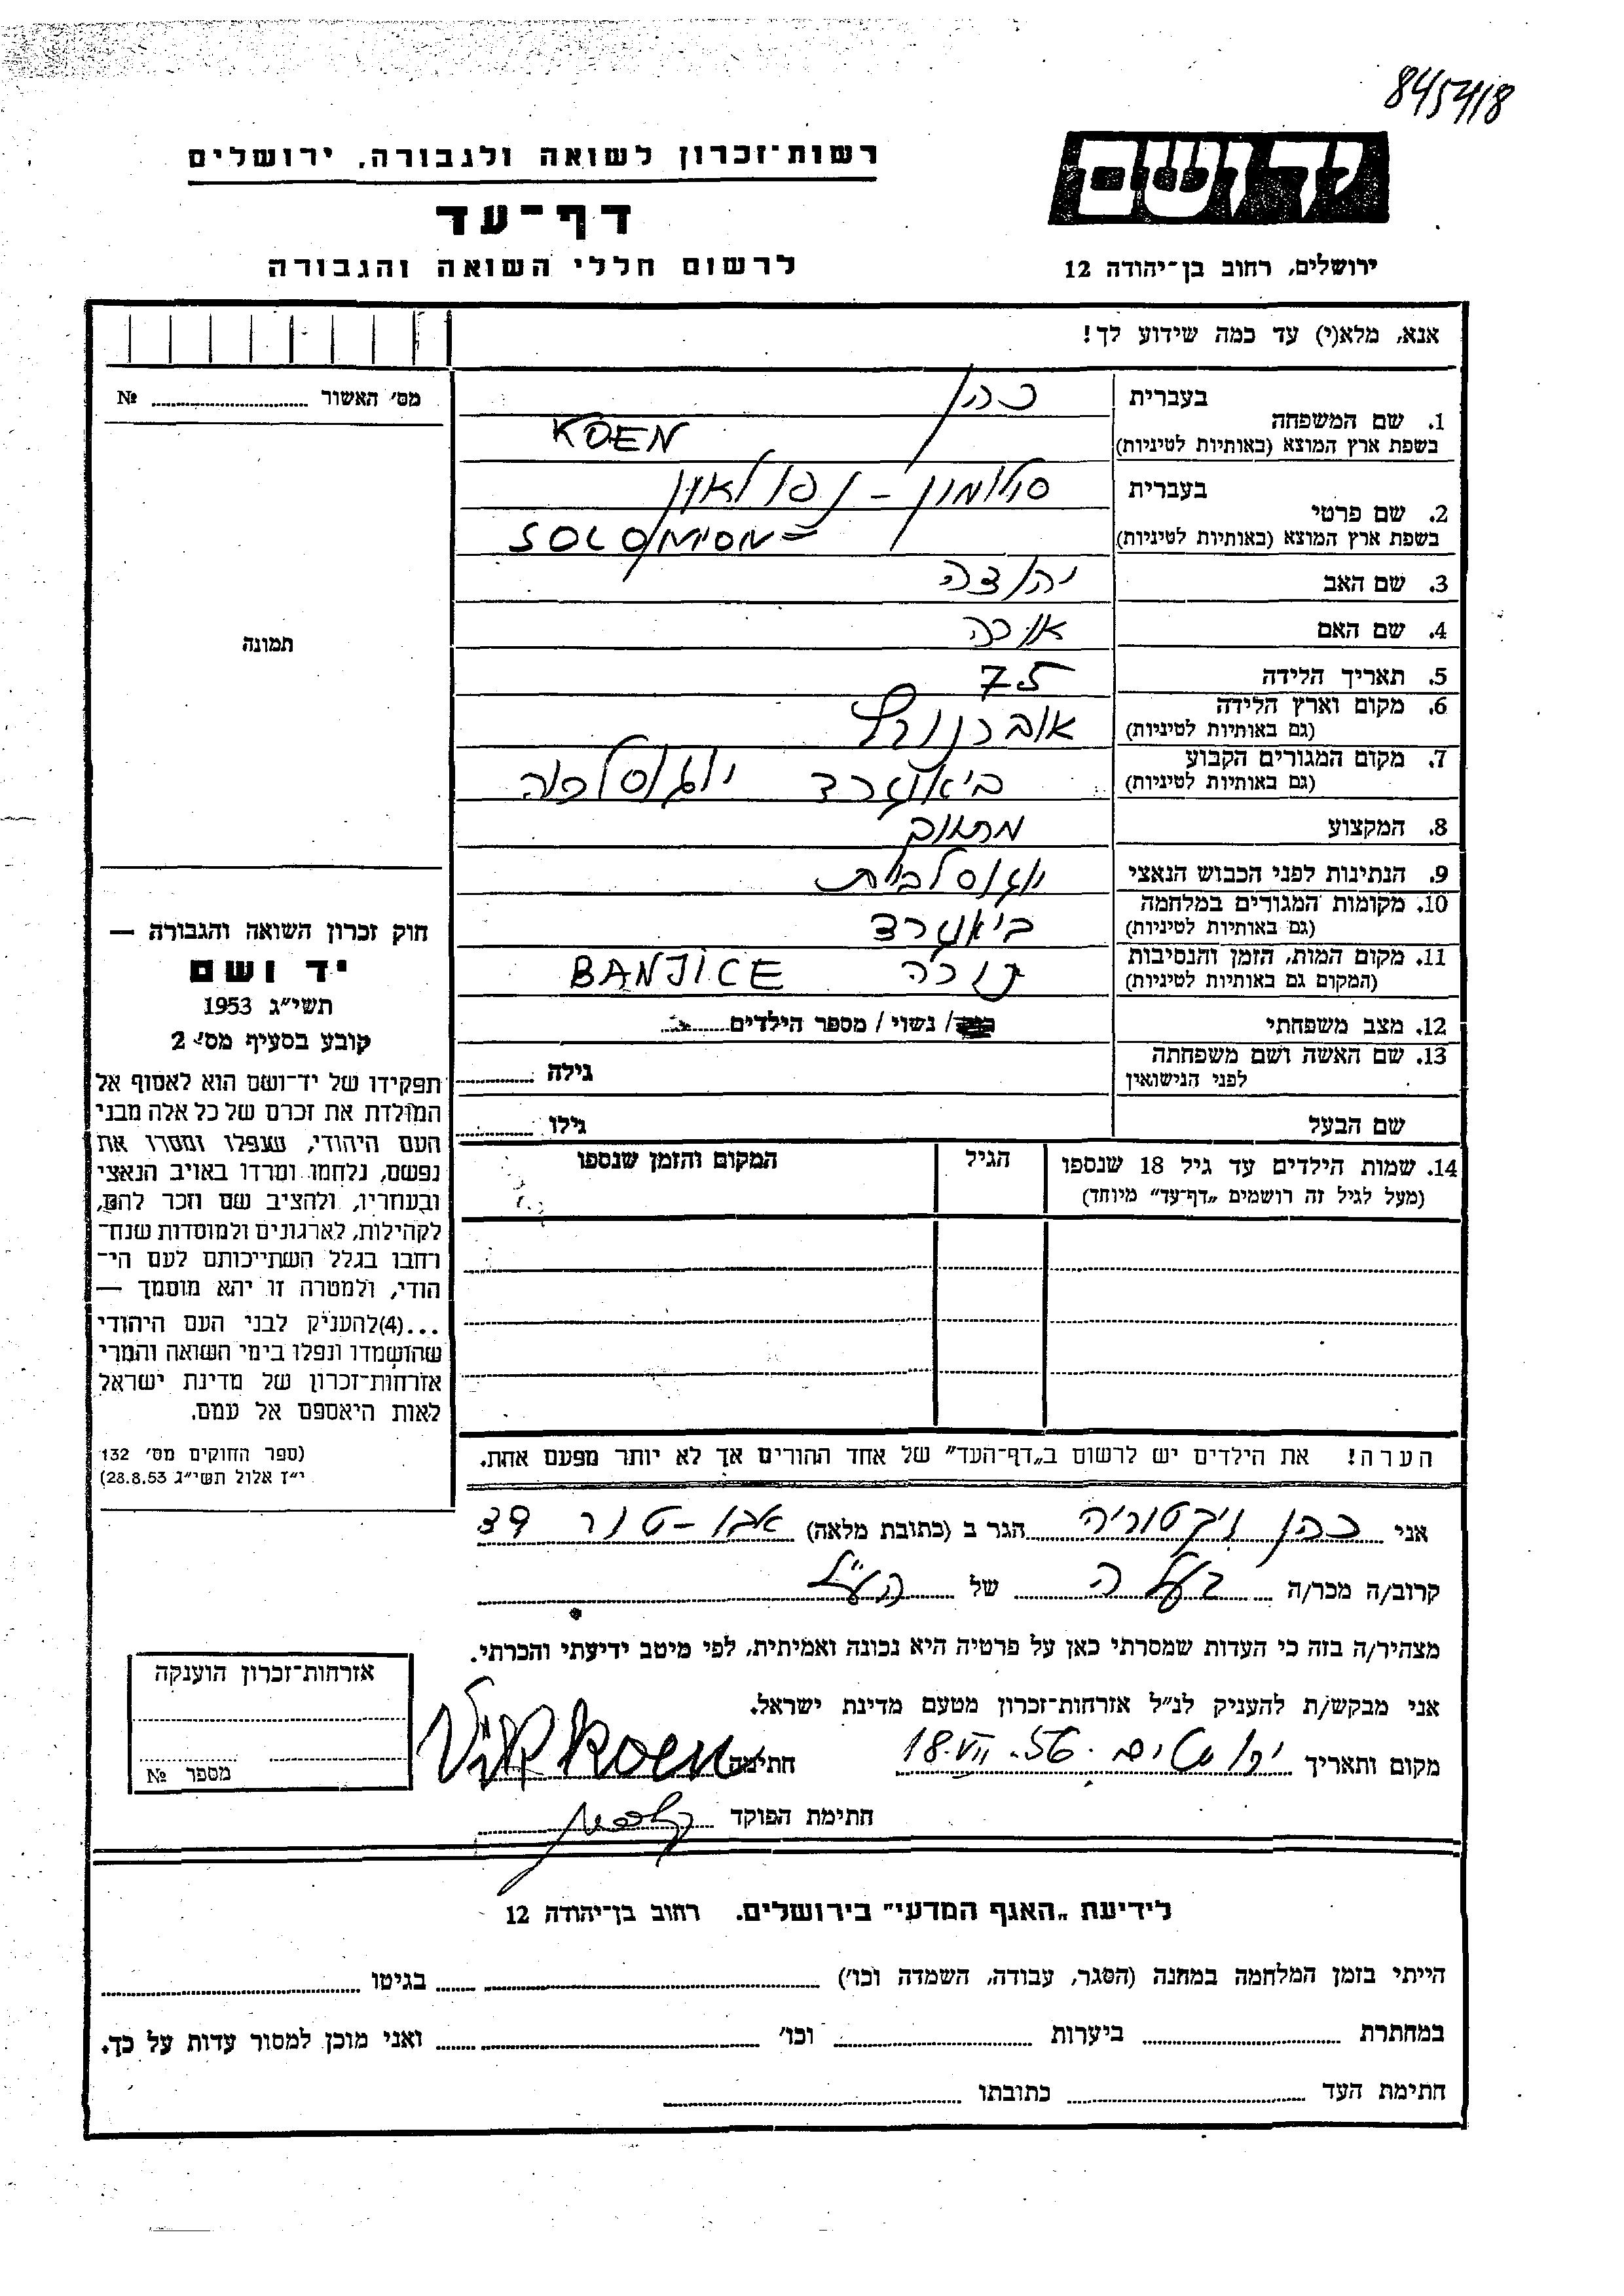 845418
רשות־זכרון לשואה ולגבורה, ירושלים
יד ושם
דף־עד
ירושלים, רחוב בן־יהודה 12
לרשום חללי השואה והגבורה
אנא, מלא(י) עד כמה שידוע לך!
מס׳ האשור № ............
1. שם המשפחה
בעברית כהן
בשפת ארץ המוצא (באותיות לטיניות) KOEN
2. שם פרטי
בעברית סולומון - נפולאון
בשפת ארץ המוצא (באותיות לטיניות) SOLOMON
3. שם האב יהודה
4. שם האם
5. תאריך הלידה 75
6. מקום וארץ הלידה
(גם באותיות לטיניות)
7. מקום המגורים הקבוע יוגוסלביה
(גם באותיות לטיניות)
8. המקצוע
9. הנתינות לפני הכבוש הנאצי יוגוסלבית
10. מקומות המגורים במלחמה
(גם באותיות לטיניות)
11. מקום המות, הזמן והנסיבות BANJICE
(המקום גם באותיות לטיניות)
12. מצב משפחתי / נשוי / מספר הילדים
13. שם האשה ושם משפחתה
לפני הנישואין גילה
שם הבעל גילו
14. שמות הילדים עד גיל 18 שנספו הגיל המקום והזמן שנספו
(מעל לגיל זה רושמים „דף־עד” מיוחד)
הערה! את הילדים יש לרשום ב„דף־העד” של אחד ההורים אך לא יותר מפעם אחת.
תמונה
חוק זכרון השואה והגבורה —
יד ושם
תשי״ג 1953
קובע בסעיף מס׳ 2
תפקידו של יד־ושם הוא לאסוף אל
המולדת את זכרם של כל אלה מבני
העם היהודי, שנפלו ומסרו את
נפשם, נלחמו ומרדו באויב הנאצי
ובעוזריו, ולהציב שם וזכר להם,
לקהילות, לארגונים ולמוסדות שנח־
רחבו בגלל השתייכותם לעם הי־
הודי, ולמטרה זו יהא מוסמך —
...(4)להעניק לבני העם היהודי
שהושמדו ונפלו בימי השואה והמרי
אזרחות־זכרון של מדינת ישראל
לאות היאספם אל עמם.
(ספר החוקים מס׳ 132
י״ז אלול תשי״ג 28.8.53)
אני כהן ויקטוריה הגר ב (כתובת מלאה) אבו-טור 39
קרוב/ה מכר/ה בעלה של הנ״ל
מצהיר/ה בזה כי העדות שמסרתי כאן על פרטיה היא נכונה ואמיתית, לפי מיטב ידיעתי והכרתי.
אני מבקש/ת להעניק לנ״ל אזרחות־זכרון מטעם מדינת ישראל.
מקום ותאריך ירושלים 18.VII.56 חתימה Vik Koen
חתימת הפוקד
אזרחות־זכרון הוענקה
מספר №
לידיעת „האגף המדעי” בירושלים. רחוב בן־יהודה 12
הייתי בזמן המלחמה במחנה (הסגר, עבודה, השמדה וכו׳) בגיטו
במחתרת ביערות וכו׳ ואני מוכן למסור עדות על כך.
חתימת העד כתובתו